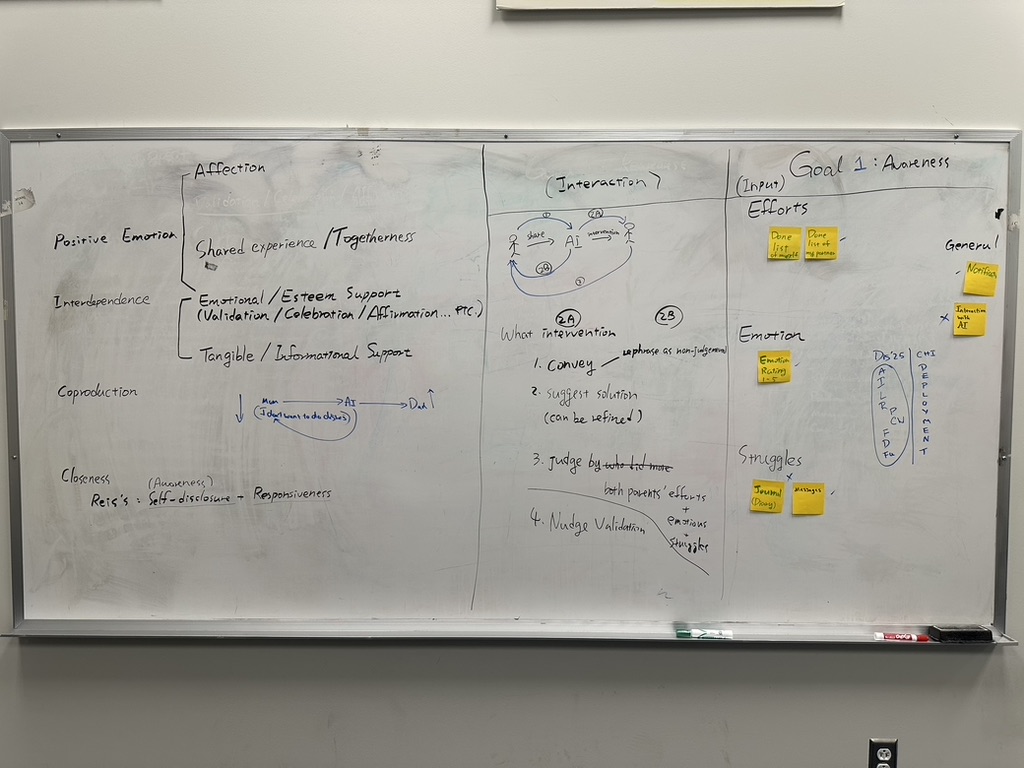 Affection
Positive Emotion
Shared experience / Togetherness
Interdependence
Emotional / Esteem Support
(Validation / Celebration / Affirmation... etc.)
Tangible / Informational Support
Coproduction
Mum
AI
Dad ↑
↓
(I don't want to do dishes)
Closeness
(Awareness)
Reis's : Self-disclosure + Responsiveness
(Interaction)
1
2A
share
AI
intervention
2B
2A
2B
What intervention
1. Convey
rephrase as non-judgemental
2. suggest solution
(can be refined)
3. judge by who did more
both parents' efforts
+
emotions
+
struggles
4. Nudge Validation
Goal 1 : Awareness
(Input)
Efforts
Done
list
of myself
Done
list of
my partner
General
Interaction
with
AI
Emotion
Emotion
Rating
1-5
CHI
DEPLOYMENT
Struggles
Journal
(Diary)
Messages
EXPO